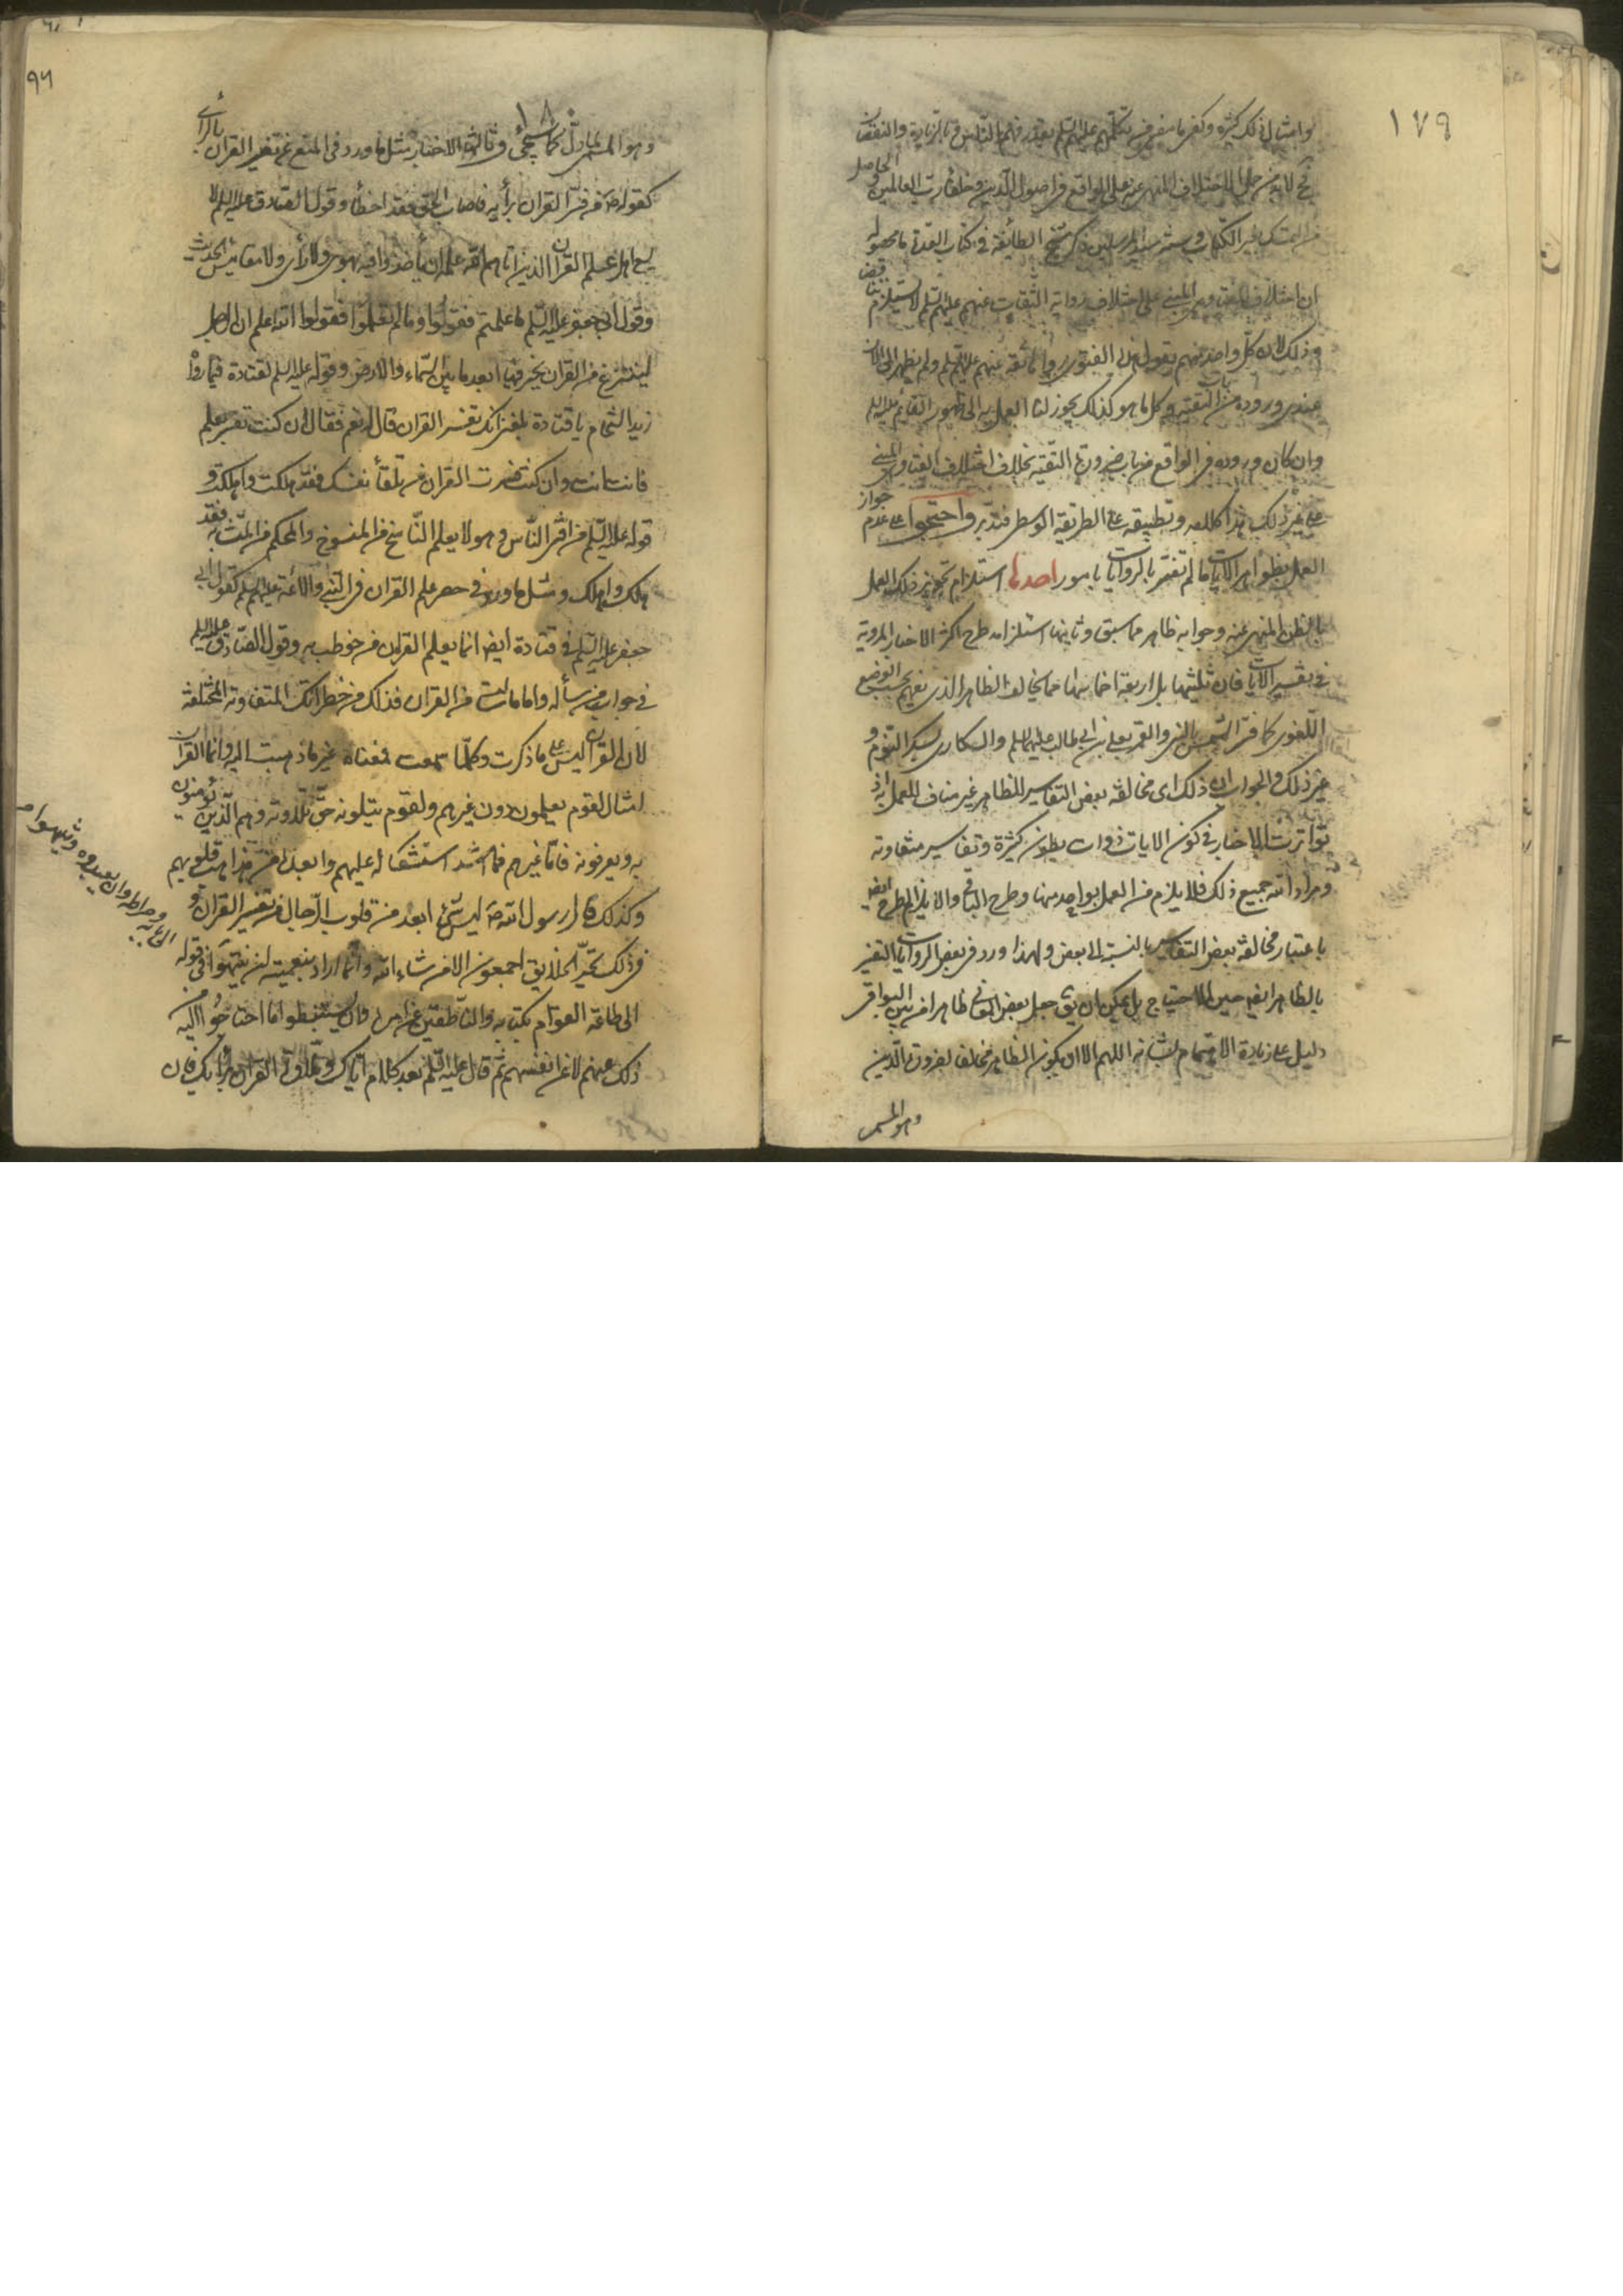 ١٧٩
وامثال ذلك كثيرة
فح لا بد من حمل الاختلاف المنهي عنه على الواقع في اصول الدين وخلفاء رب العالمين والحاصل
من التمسك بغير الكتاب وسنة سيد المرسلين ذكر شيخ الطائفة في كتاب العدة ما محصوله
ان اختلاف الفتاوى المبني على اختلاف رواية الثقات عنهم عليهم السلم لا يستلزم تناقضا
وذلك لان كل واحد منهم يقول هذه الفتوى رواها ثقة عنهم عليهم السلم ولم يظهر الى الان
عندي وروده من باب التقية وكل ما هو كذلك يجوز لنا العمل به الى ظهور القائم عليه السلم
وان كان وروده في الواقع من باب ضرورة التقية بخلاف اختلاف الفتاوى المبني
على غير ذلك هذا كلامه وتطبيقه على الطريقة الوسطى فتدبر واحتجوا على عدم جواز
العمل بظواهر الايات ما لم تفسر بالروايات بامور احدها استلزام تجويز ذلك العمل
بالظن المنهي عنه وجوابه ظاهر مما سبق وثانيها استلزامه طرح اكثر الاخبار المروية
في تفسير الايات فان ثلثيها بل اربعة اخماسها مما يخالف الظاهر الذي يفهم بحسب الوضع
اللغوي كما فسر الشمس بالنبي والقمر بعلي بن ابي طالب عليهما السلم والسكارى بسكر النوم و
غير ذلك والجواب ان ذلك اي مخالفة بعض التفاسير للظاهر غير مناف للعمل به اذ
تواترت الاخبار في كون الايات ذوات بطون كثيرة وتفاسير متفاوتة
ومراد الله جميع ذلك فلا يلزم من العمل بواحد منها وطرح الباقي والا يلزم الطرح ايضا
باعتبار مخالفة بعض التفاسير بالنسبة الى بعض ولهذا ورد في بعض الروايات التفسير
بالظاهر ايضا حين الاحتياج بل يمكن ان يق جعل بعض المعاني ظاهرا من بين البواقي
دليل على زيادة الاهتمام بشانه اللهم الا ان يكون الظاهر مخالفا لضرورة الدين
وهو المسمى
٩٦
١٨٠
وهو المسمى بالمأول كما سيجئ وثالثها الاخبار مثل ما ورد في المنع عن تفسير القران بالرأي
كقوله ص من فسر القران برأيه فاصاب الحق فقد اخطأ وقول الصادق عليه السلم لا
يسع اهل علم القران الذين اتاهم الله علمه ان يأخذوا فيه بهوى ولا رأي ولا مقائيس الحديث
وقول ابي جعفر عليه السلم ما علمتم فقولوا وما لم تعلموا فقولوا الله اعلم ان الرجل
لينتزع من القران يخر فيها ابعد ما بين السماء والارض وقوله عليه السلم لقتادة فيما رواه
زيد الشحام يا قتادة بلغني انك تفسر القران قال له نعم فقال ان كنت تفسر بعلم
فانت انت وان كنت فسرت القران من تلقاء نفسك فقد هلكت واهلكت و
قوله عليه السلم من افتى الناس وهو لا يعلم الناسخ من المنسوخ والمحكم من المتشابه فقد
هلك واهلك ومثل ما ورد في حصر علم القران في النبي والائمة عليهم السلم كقول ابي
جعفر عليه السلم في قتادة ايضا انما يعلم القران من خوطب به وقول الصادق عليه السلم
في جواب من سأله واما ما سألت من القران فذلك من خطراتك المتفاوتة المختلفة
لان القران ليس على ما ذكرت وكلما سمعت فمعناه غير ما ذهبت اليه وانما القران
امثال لقوم يعلمون دون غيرهم ولقوم يتلونه حق تلاوته وهم الذين يؤمنون
به ويعرفونه فاما غيرهم فما اشد استشكاله عليهم وابعده من مذاهب قلوبهم
وكذلك قال رسول الله ص ليس شئ ابعد من قلوب الرجال من تفسير القران و
في ذلك تحير الخلائق اجمعون الا من شاء الله وانما اراد بتعميته ان ينتهوا في قوله
الى بابه وصراطه وان يعبدوه وينتهوا
الى طاعة القوام بكتابه والناطقين عن امره وان يستنبطوا ما احتاجوا اليه من
ذلك عنهم لا عن انفسهم ثم قال عليه السلم بعد كلام اياك وتلاوة القران برأيك فان